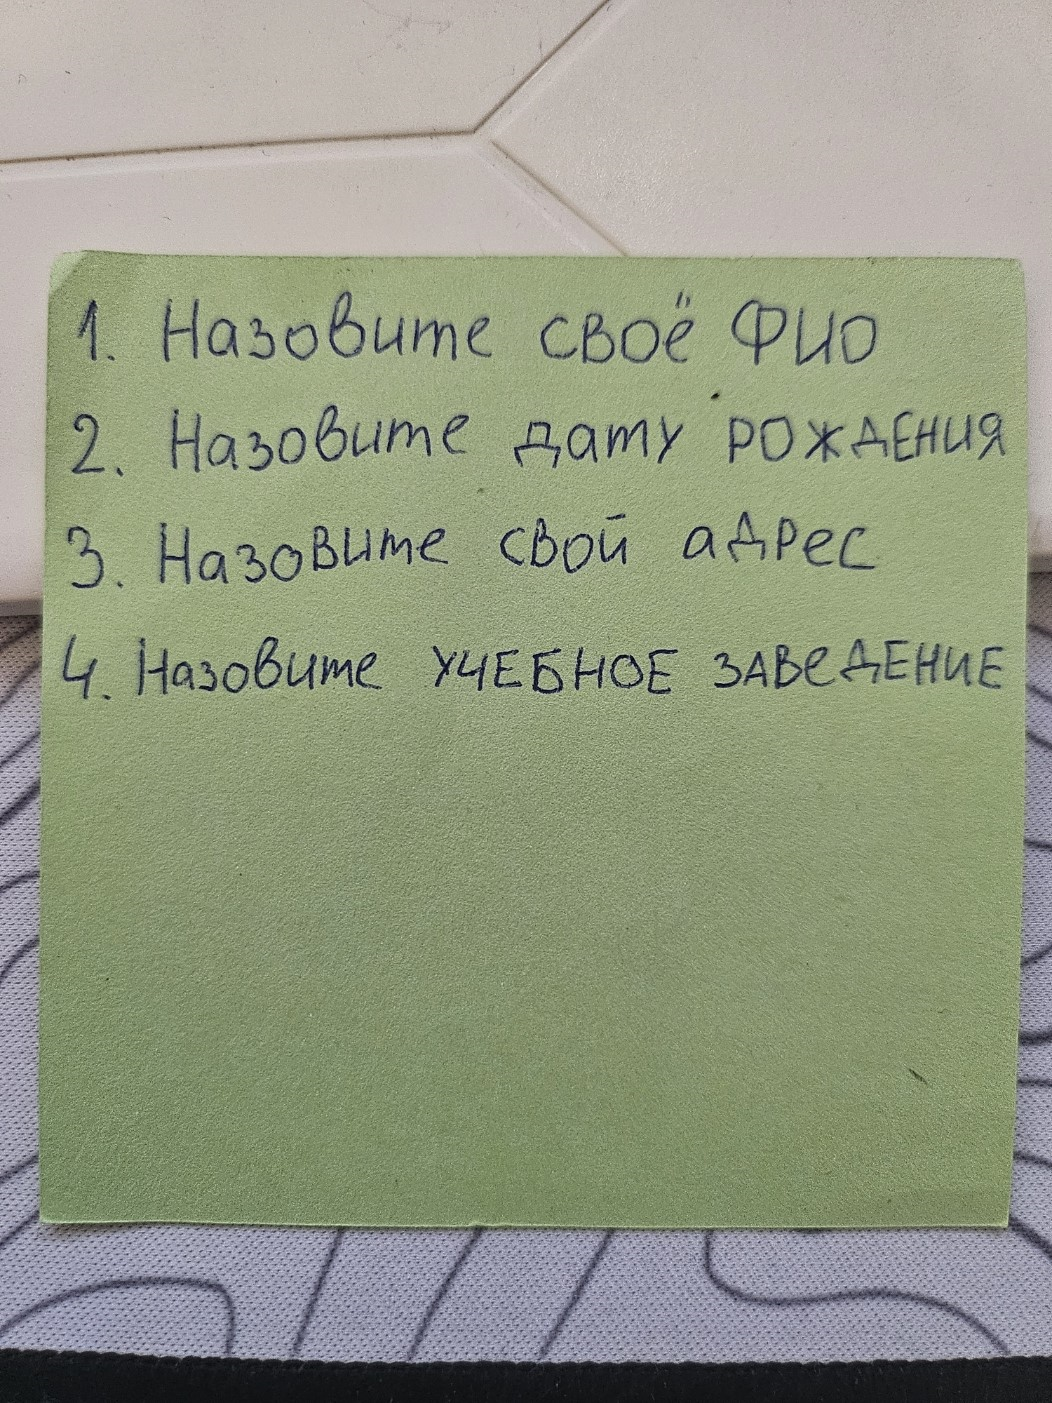 1. Назовите своё ФИО
2. Назовите дату рождения
3. Назовите свой адрес
4. Назовите учебное заведение